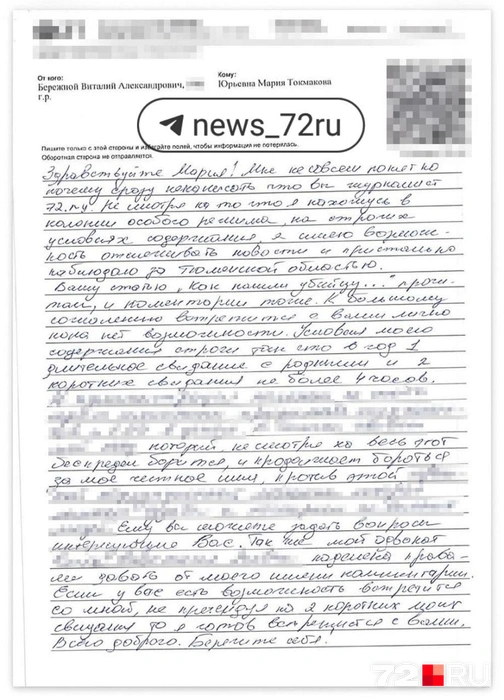 От кого:
Бережной Виталий Александрович,
г.р.
Кому:
Юрьевна Мария Токмакова
news_72ru
Пишите только с этой стороны и избегайте полей, чтобы информация не потерялась.
Оборотная сторона не отправляется.
Здравствуйте Мария! Мне не совсем понятно
почему сразу ненаписать что вы журналист
72.ру. Не смотря на то что я нахожусь в
колонии особого режима, на строгих
условиях содержания я имею возмож-
ность отслеживать новости и пристально
наблюдаю за Тюменской областью.
Вашу статью „Как нашли убийцу..." прочи-
тал, и коментарии тоже. К большому
сожалению встретится с вами лично
пока нет возможности. Условия моего
содержания строги так что в год 1
длительное свидание с родными и 2
коротких свидания не более 4 часов.
который, не смотря на весь этот
беспредел борется, и продолжает бороться
за мое честное имя, против этой
Ему вы можете задать вопросы
интересующие Вас. Так же мой адвокат
наделена права-
ми давать от моего имени комментарии.
Если у вас есть возможность встретится
со мной, не претендуя на 2 коротких моих
свидания то я готов встретится с вами.
Всего доброго. Берегите себя.
72.RU